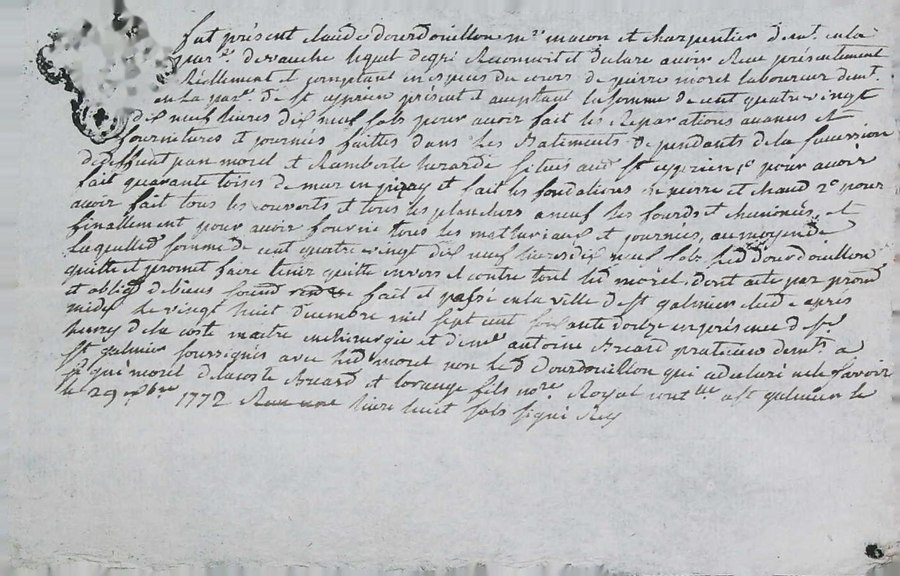 fut présent claude dourdouillon mre macon et charpentier demt. en la
parse. devauche lequel degré Reconnoit et declare avoir Receu présentement
Réellement et comptant en especes du cours de pierre morel laboureur demt.
en La parse. de st. cyprien présent et acceptant la somme de cent quatre vingt
dix neuf livres dix neuf sols pour avoir fait les Reparations avances et
fournitures et journées faittes dans Les Batiments dependants de la succession
de deffunt jean morel et Ramberte Girardie situes aud st cyprien 1° pour avoir
fait quarante toises de mur en pizey et fait les fondations de pierre et chaud 2° pour
avoir fait tous les couverts et tous les planchers a neuf les fourds et cheminées, et
finallement pour avoir fournie tous les matteriaux et journées, au moyen de
laquelle somme de cent quatre vingt dix neuf livres dix neuf sols led dourdouillon
quitte et promet faire tenir quitte envers et contre tous led morel, dont acte par prom
et oblig de biens fait et passé en la ville de st galmier étude apres
midy le vingt huit décembre mil sept cent soixante douze en présence de sr
henry de la coste maitre en chirurgie et de me antoine Briard praticien demts. a
st galmier soussignés avec led morel non led Dourdouillon qui a declaré ne le savoir
morel delacoste Briard et lorange fils nore. Royal contllé a st galmier le
le 29 xbre 1772 livre huit sols signé Rey